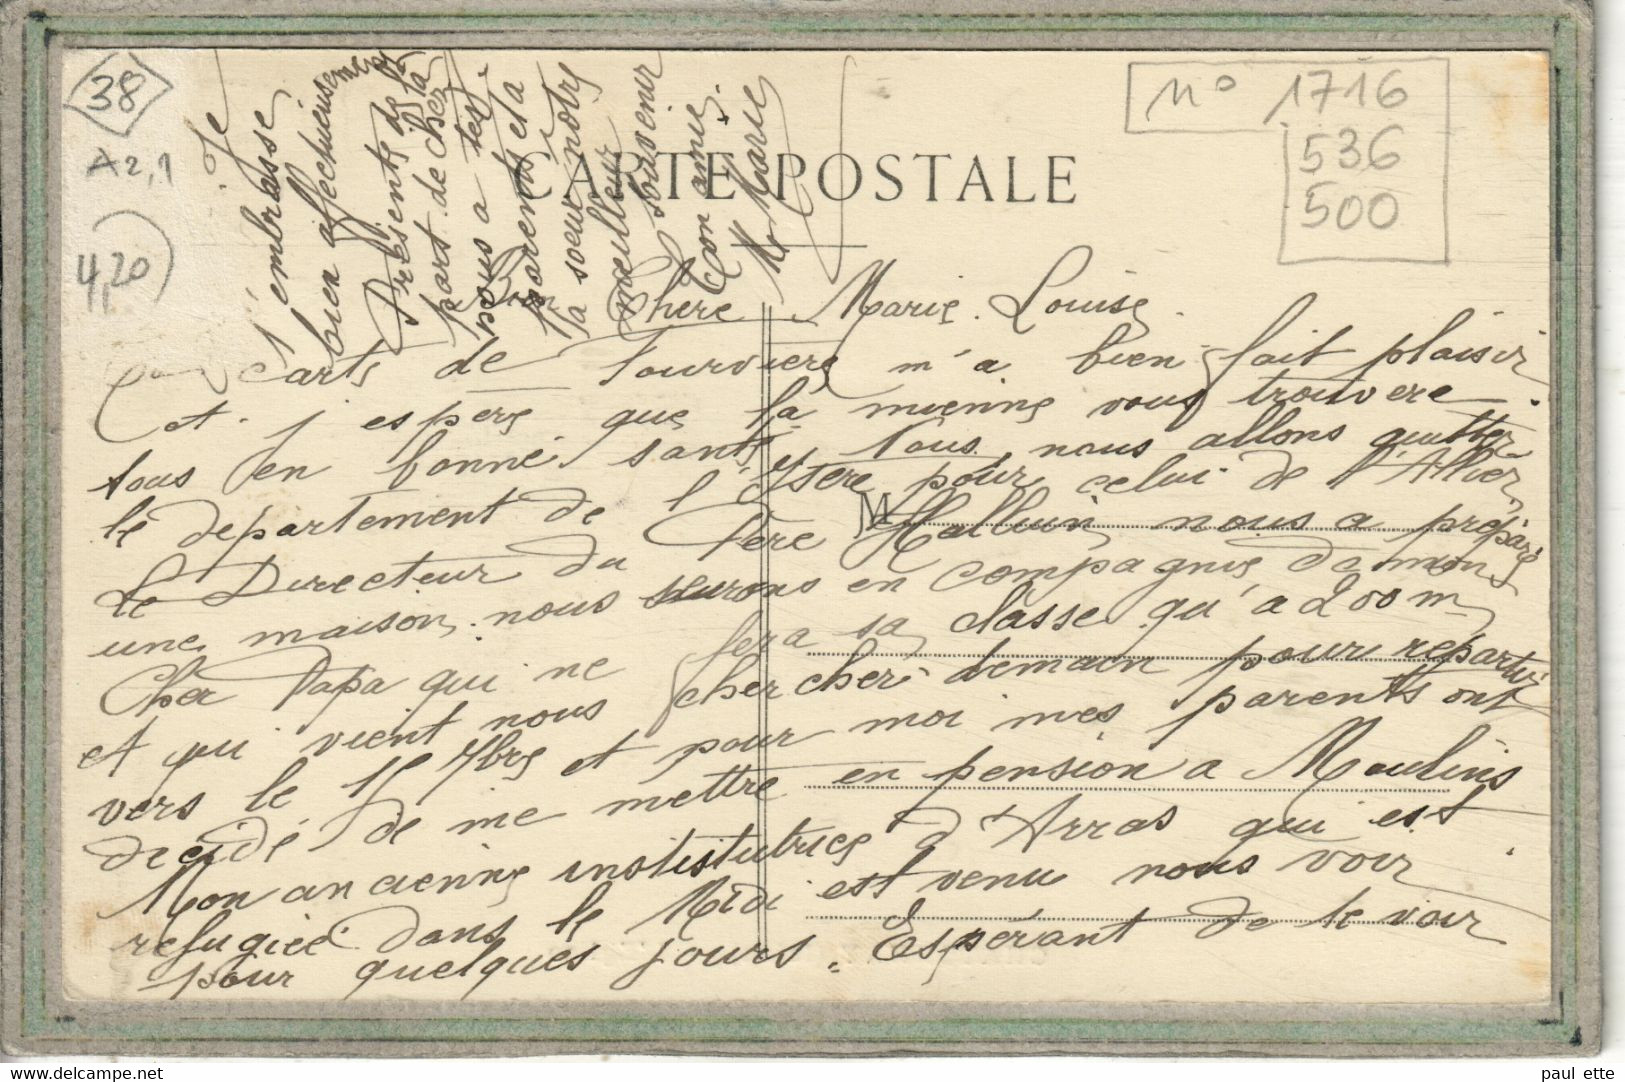 38
A2,1
4,20
N° 1716
536
500
CARTE POSTALE
Bien Chère Marie Louise
Ta carte de Fourvière m'a bien fait plaisir
et j'espère que la mienne vous trouvera
tous en bonne santé. Nous nous allons quitter
le département de l'Ysère pour celui de l'Allier,
le Directeur du Père Halluin nous a préparé
une maison, nous serons en compagnie de mon
Cher Papa qui ne fera sa classe qu'à 200 m
et qui vient nous chercher demain pour repartir
vers le 15 7bre et pour moi mes parents ont
décidé de me mettre en pension a Moulins
Mon ancienne institutrice d'Arras qui est
refugiée dans le Midi est venu nous voir
pour quelques jours. Espérant de te voir
M
Je
t'embrasse
bien affectueusement
Présente de la
part de cher
nous a tes
parents et a
ta soeur notre
meilleur souvenir
Ton amie
M Marie
paul ette
www.delcampe.net